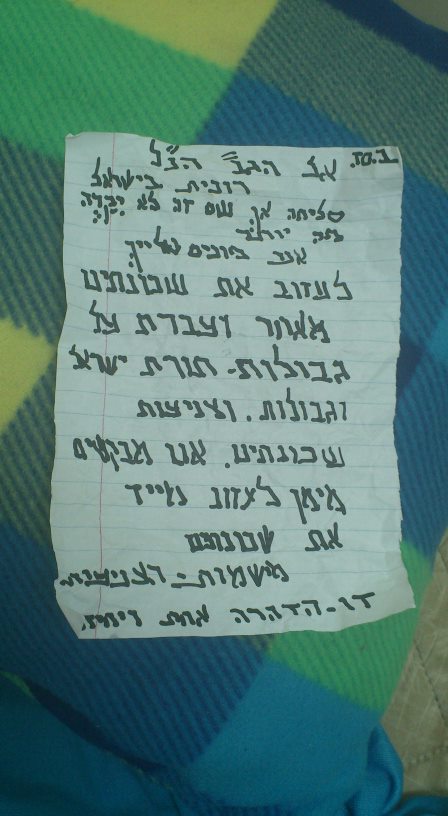 ב.ס.ד.
אל הגב' הנ"ל
רונית בישראל
סליחה אך שום זה לא
אנו פונים אלייך
לעזוב את שכונתינו
מאחר ועברת על
גבולות - תורת ישראל
וגבולות. וצניעות
שכונתינו. אנו מבקשים
מימך לעזוב מייד
את שכונתינו
משמרות - הצניעות.
זו - הזהרה אחת ויחידה.